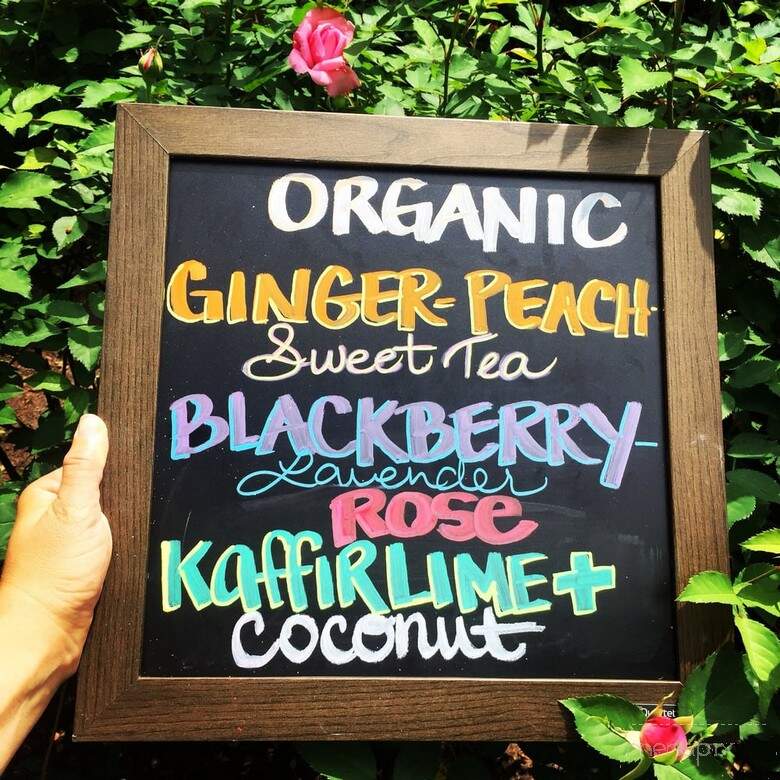 ORGANIC
GINGER-PEACH
Sweet Tea
BLACKBERRY-
Lavender
ROSE
KaffiRLIME+
coconut
Quartet